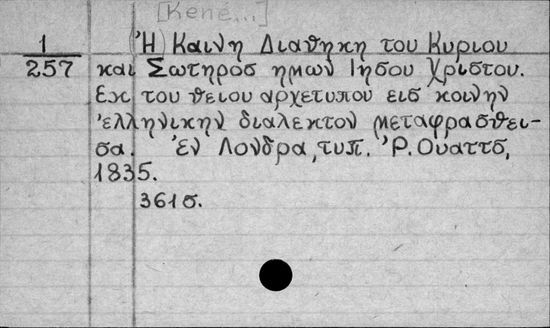 [Kené...]
1
257
(Ἡ) Καινη Διαθηκη του Κυριου
και Σωτηροσ ημων Ιησου Χριστου.
Εκ του θειου αρχετυπου εισ κοινην
ἑλληνικην διαλεκτον μεταφρασθει-
σα. Ἐν Λονδρα, τυπ. Ῥ. Ουαττσ,
1835.
361σ.